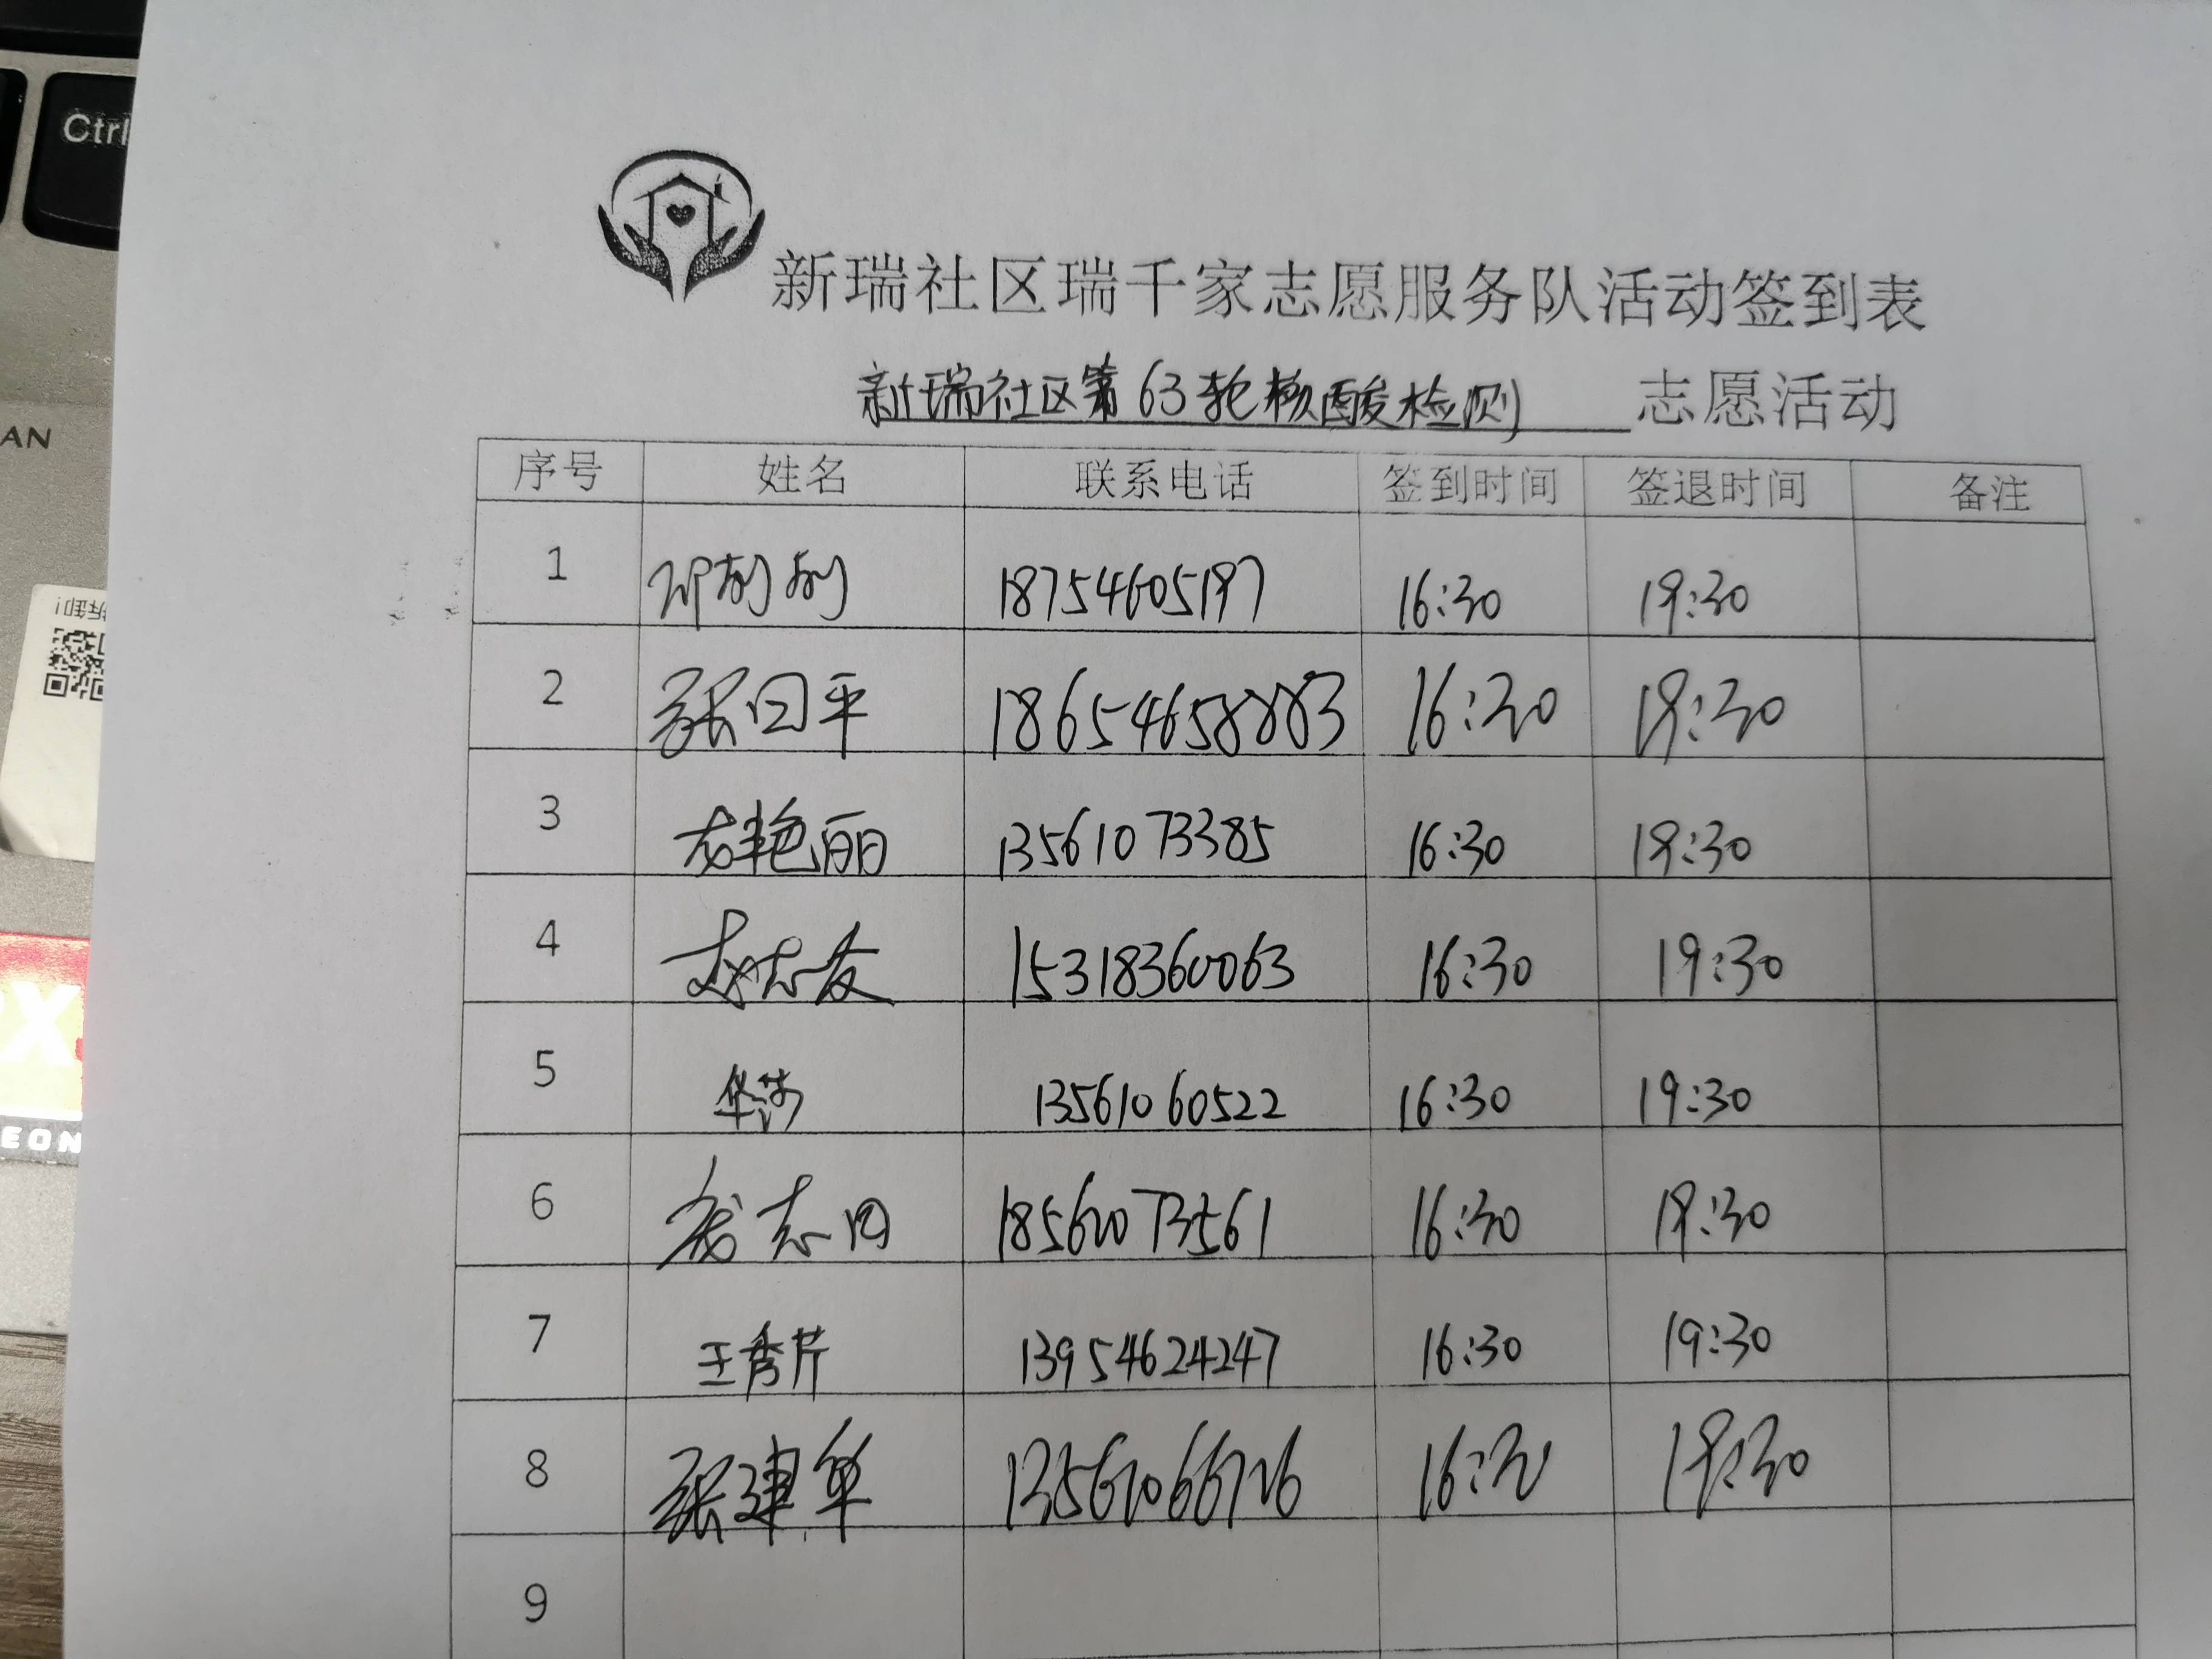 Ctrl
AN
新瑞社区瑞千家志愿服务队活动签到表
新瑞社区第63轮核酸检测 志愿活动
序号 姓名 联系电话 签到时间 签退时间 备注
1 18754605197 16:30 19:30
2 张回平 18654658883 16:30 19:30
3 艳丽 13561073385 16:30 19:30
4 赵志友 15318360063 16:30 19:30
5 华莎 13561060522 16:30 19:30
6 志 18560073561 16:30 19:30
7 王秀芹 13954624247 16:30 19:30
8 张建华 16:30 19:30
9
EON